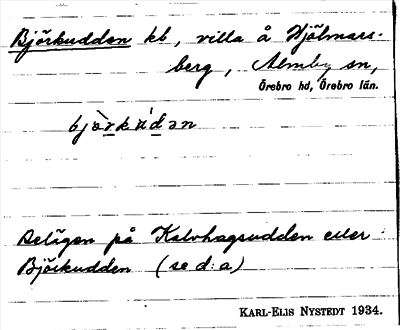 Björkudden kb, villa å Hjälmars-
berg, Almby sn,
Örebro hd, Örebro län.
Belägen på Kalvhagsudden eller
Björkudden (se d:a)
KARL-ELIS NYSTEDT 1934.